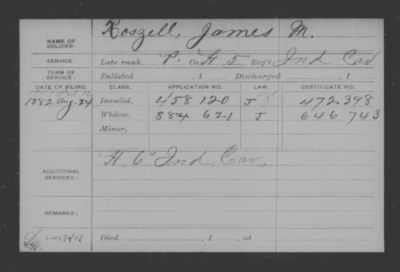 NAME OF SOLDIER: Roszell, James M.
SERVICE: Late rank, P. Co. H, 5 Reg't Ind Cav
TERM OF SERVICE: Enlisted , 1 Discharged , 1
DATE OF FILING. CLASS. APPLICATION NO. LAW. CERTIFICATE NO.
1882 Aug. 24 Invalid, 458 120 J 472.398
Widow, 884 621 J 646 743
Minor,
ADDITIONAL SERVICES: "H. 6" Ind. Cav.
REMARKS:
Died , 1 , at